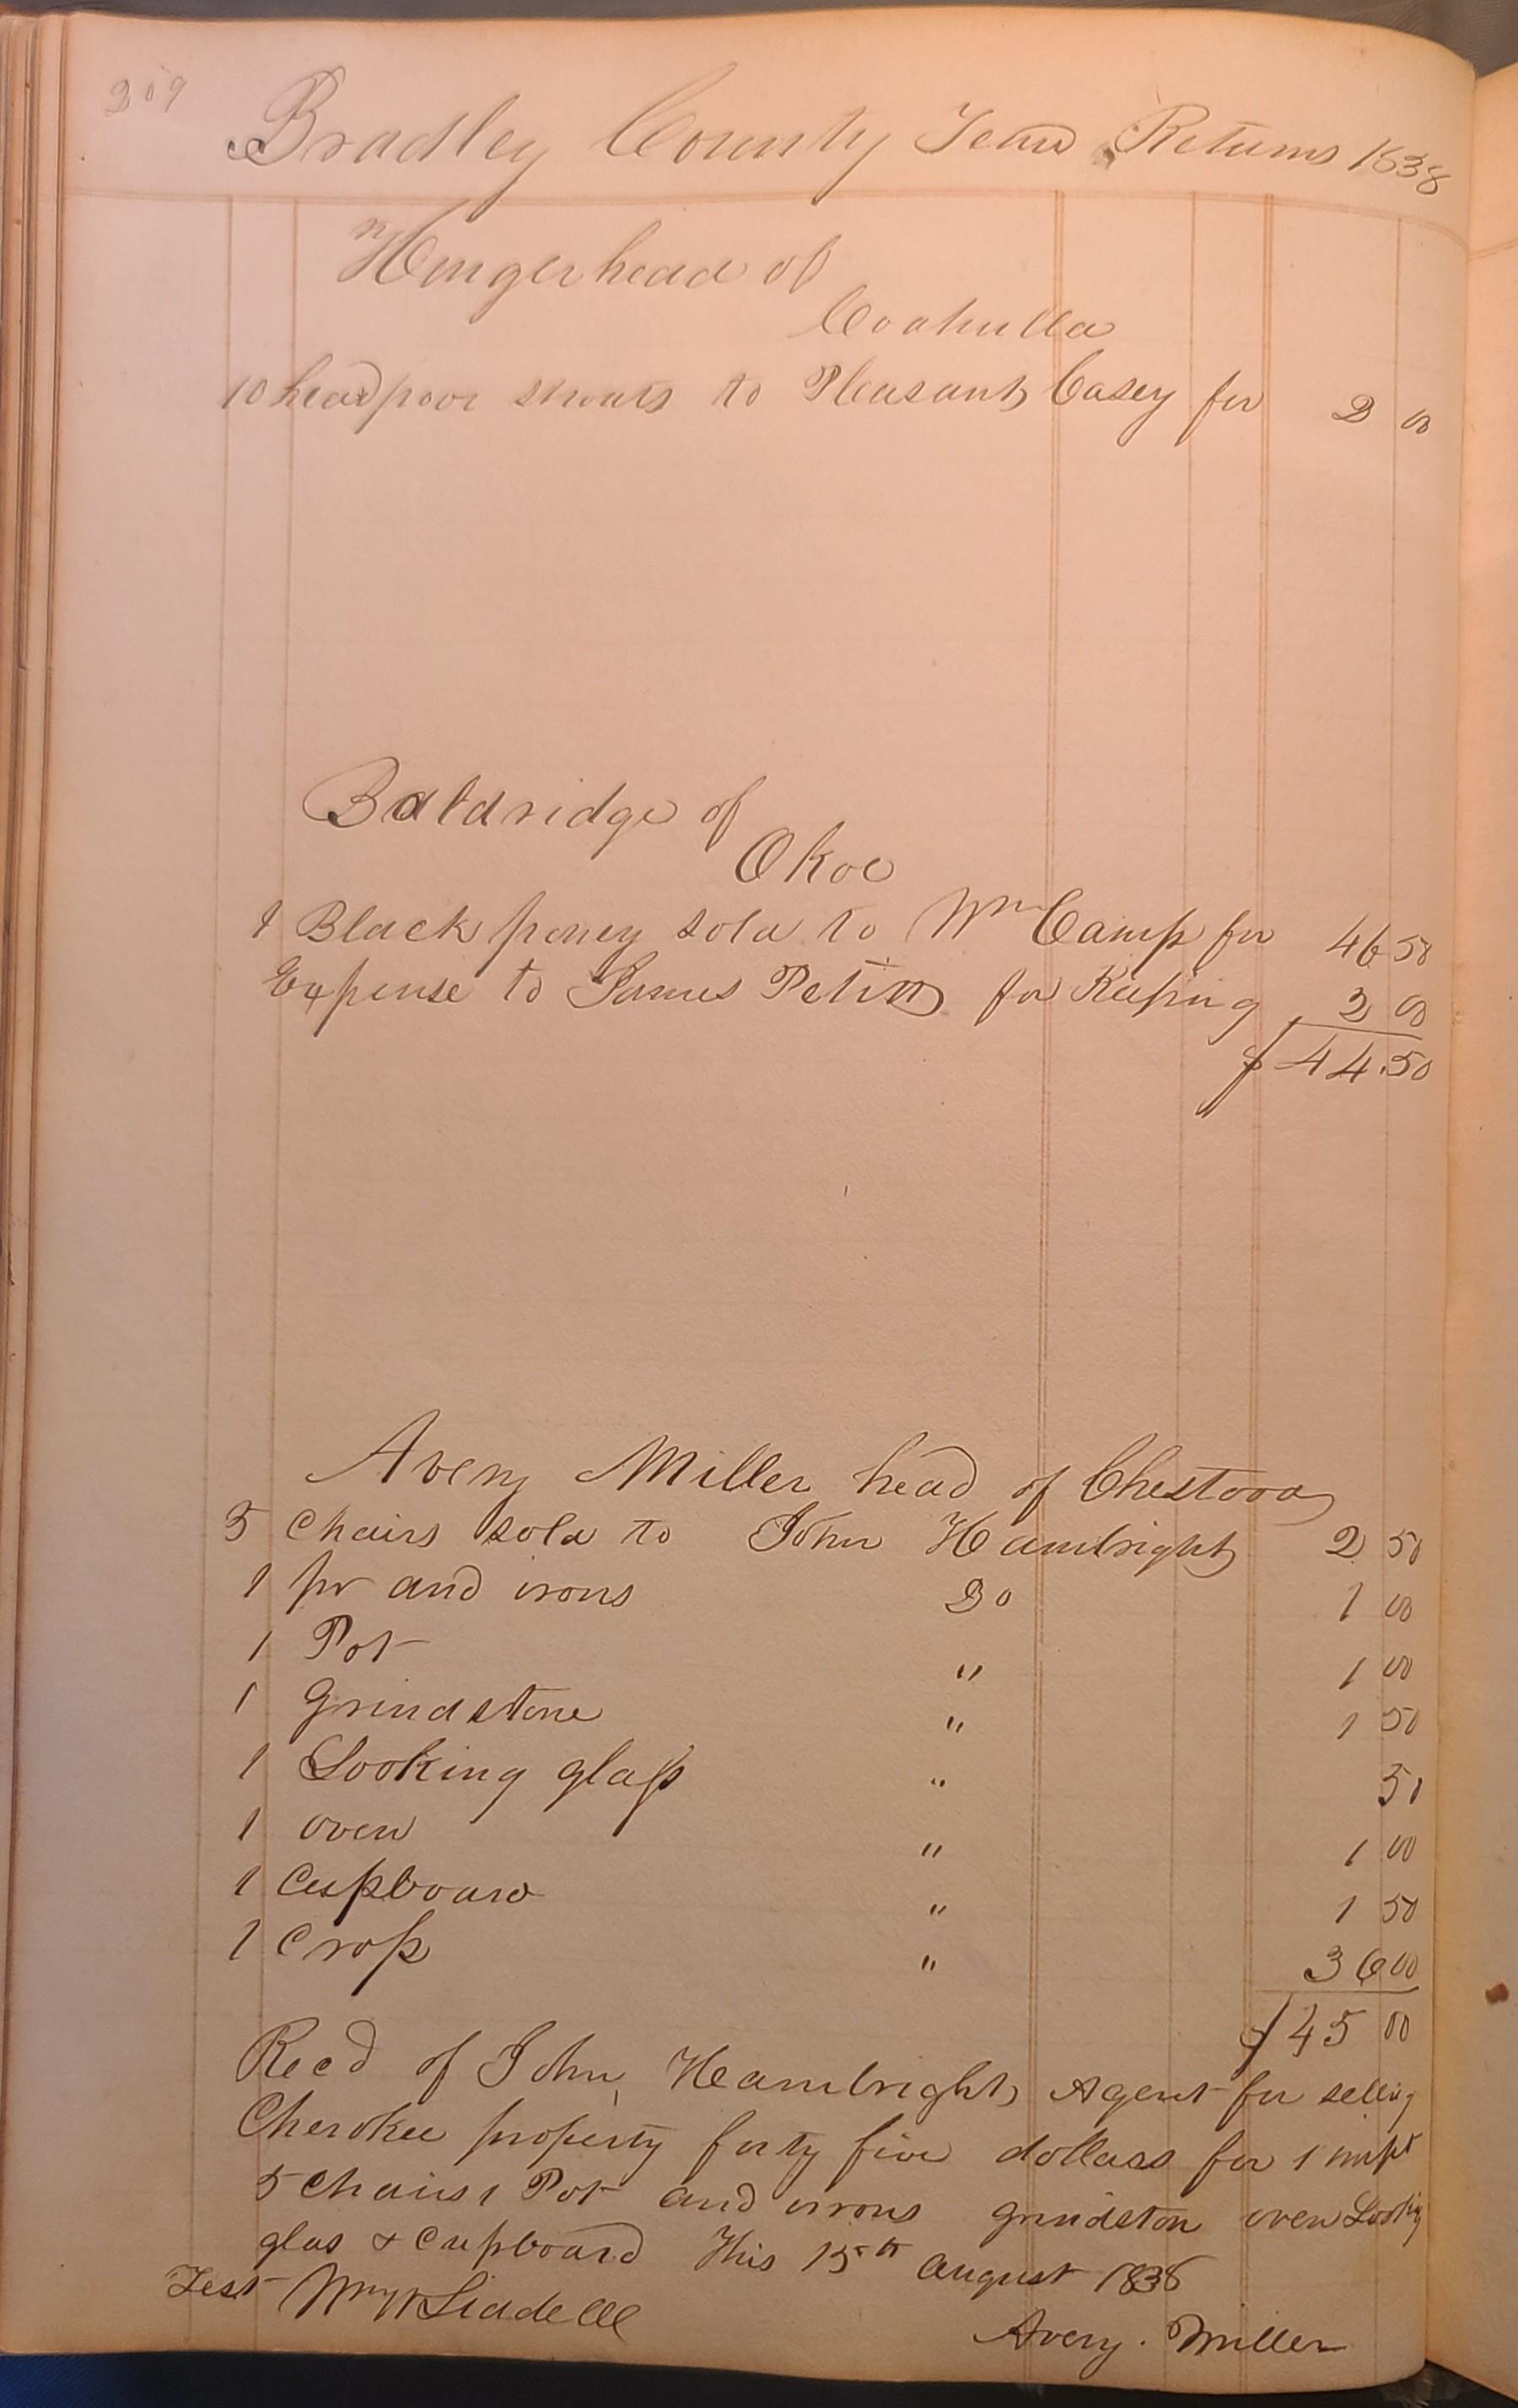 209
Bradley County Tenn Returns 1838
Hungerhead of
Coahulla
10 head poor shoats to Pleasant Casey for 2 00
Baldridge of
Okoe
1 Black poney sold to Wm Camp for 46 50
Expense to James Petitt for Keeping 2 00
$ 44.50
Avery Miller head of Chestooa
5 Chairs sold to John Hambright 2 50
1 pr and irons Do 1 00
1 Pot " 1 00
1 Grindstone " 1 50
1 Looking glass " 50
1 oven " 1 00
1 Cupboard " 1 50
1 Crop " 36 00
$ 45 00
Recd of John Hambright Agent for selling
Cherokee property forty five dollars for 1
5 Chairs 1 Pot and irons grindston oven Looking
glas & Cupboard This 15th August 1838
Test Wm Liddell
Avery. Miller